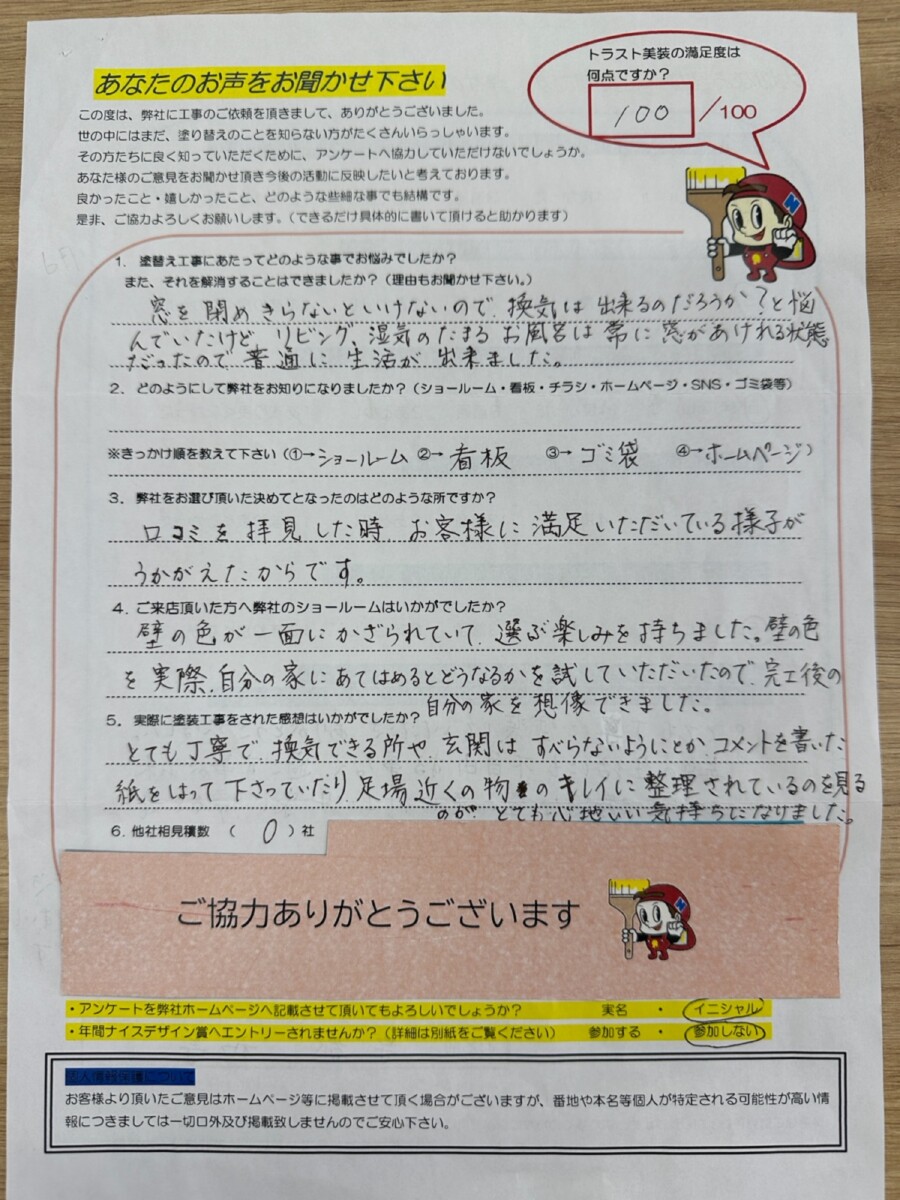 あなたのお声をお聞かせ下さい
トラスト美装の満足度は
何点ですか？
100/100
この度は、弊社に工事のご依頼を頂きまして、ありがとうございました。
世の中にはまだ、塗り替えのことを知らない方がたくさんいらっしゃいます。
その方たちに良く知っていただくために、アンケートへ協力していただけないでしょうか。
あなた様のご意見をお聞かせ頂き今後の活動に反映したいと考えております。
良かったこと・嬉しかったこと、どのような些細な事でも結構です。
是非、ご協力よろしくお願いします。（できるだけ具体的に書いて頂けると助かります）
1．塗替え工事にあたってどのような事でお悩みでしたか？
また、それを解消することはできましたか？（理由もお聞かせ下さい。）
窓を閉めきらないといけないので、換気は出来るのだろうか？と悩
んでいたけど、リビング、湿気のたまるお風呂は常に窓があけれる状態
だったので普通に生活が出来ました。
2．どのようにして弊社をお知りになりましたか？（ショールーム・看板・チラシ・ホームページ・SNS・ゴミ袋等）
※きっかけ順を教えて下さい（①→ショールーム ②→看板 ③→ゴミ袋 ④→ホームページ）
3．弊社をお選び頂いた決めてとなったのはどのような所ですか？
口コミを拝見した時、お客様に満足いただいている様子が
うかがえたからです。
4．ご来店頂いた方へ弊社のショールームはいかがでしたか？
壁の色が一面にかざられていて、選ぶ楽しみを持ちました。壁の色
を実際、自分の家にあてはめるとどうなるかを試していただいたので、完工後の
自分の家を想像できました。
5．実際に塗装工事をされた感想はいかがでしたか？
とても丁寧で、換気できる所や、玄関はすべらないようにとかコメントを書いた
紙をはって下さっていたり、足場近くの物のキレイに整理されているのを見る
のが、とても心地いい気持ちになりました。
6．他社相見積数（ 0 ）社
ご協力ありがとうございます
・アンケートを弊社ホームページへ記載させて頂いてもよろしいでしょうか？ 実名 ・ イニシャル
・年間ナイスデザイン賞へエントリーされませんか？（詳細は別紙をご覧ください） 参加する ・ 参加しない
個人情報保護について
お客様より頂いたご意見はホームページ等に掲載させて頂く場合がございますが、番地や本名等個人が特定される可能性が高い情
報につきましては一切口外及び掲載致しませんのでご安心下さい。